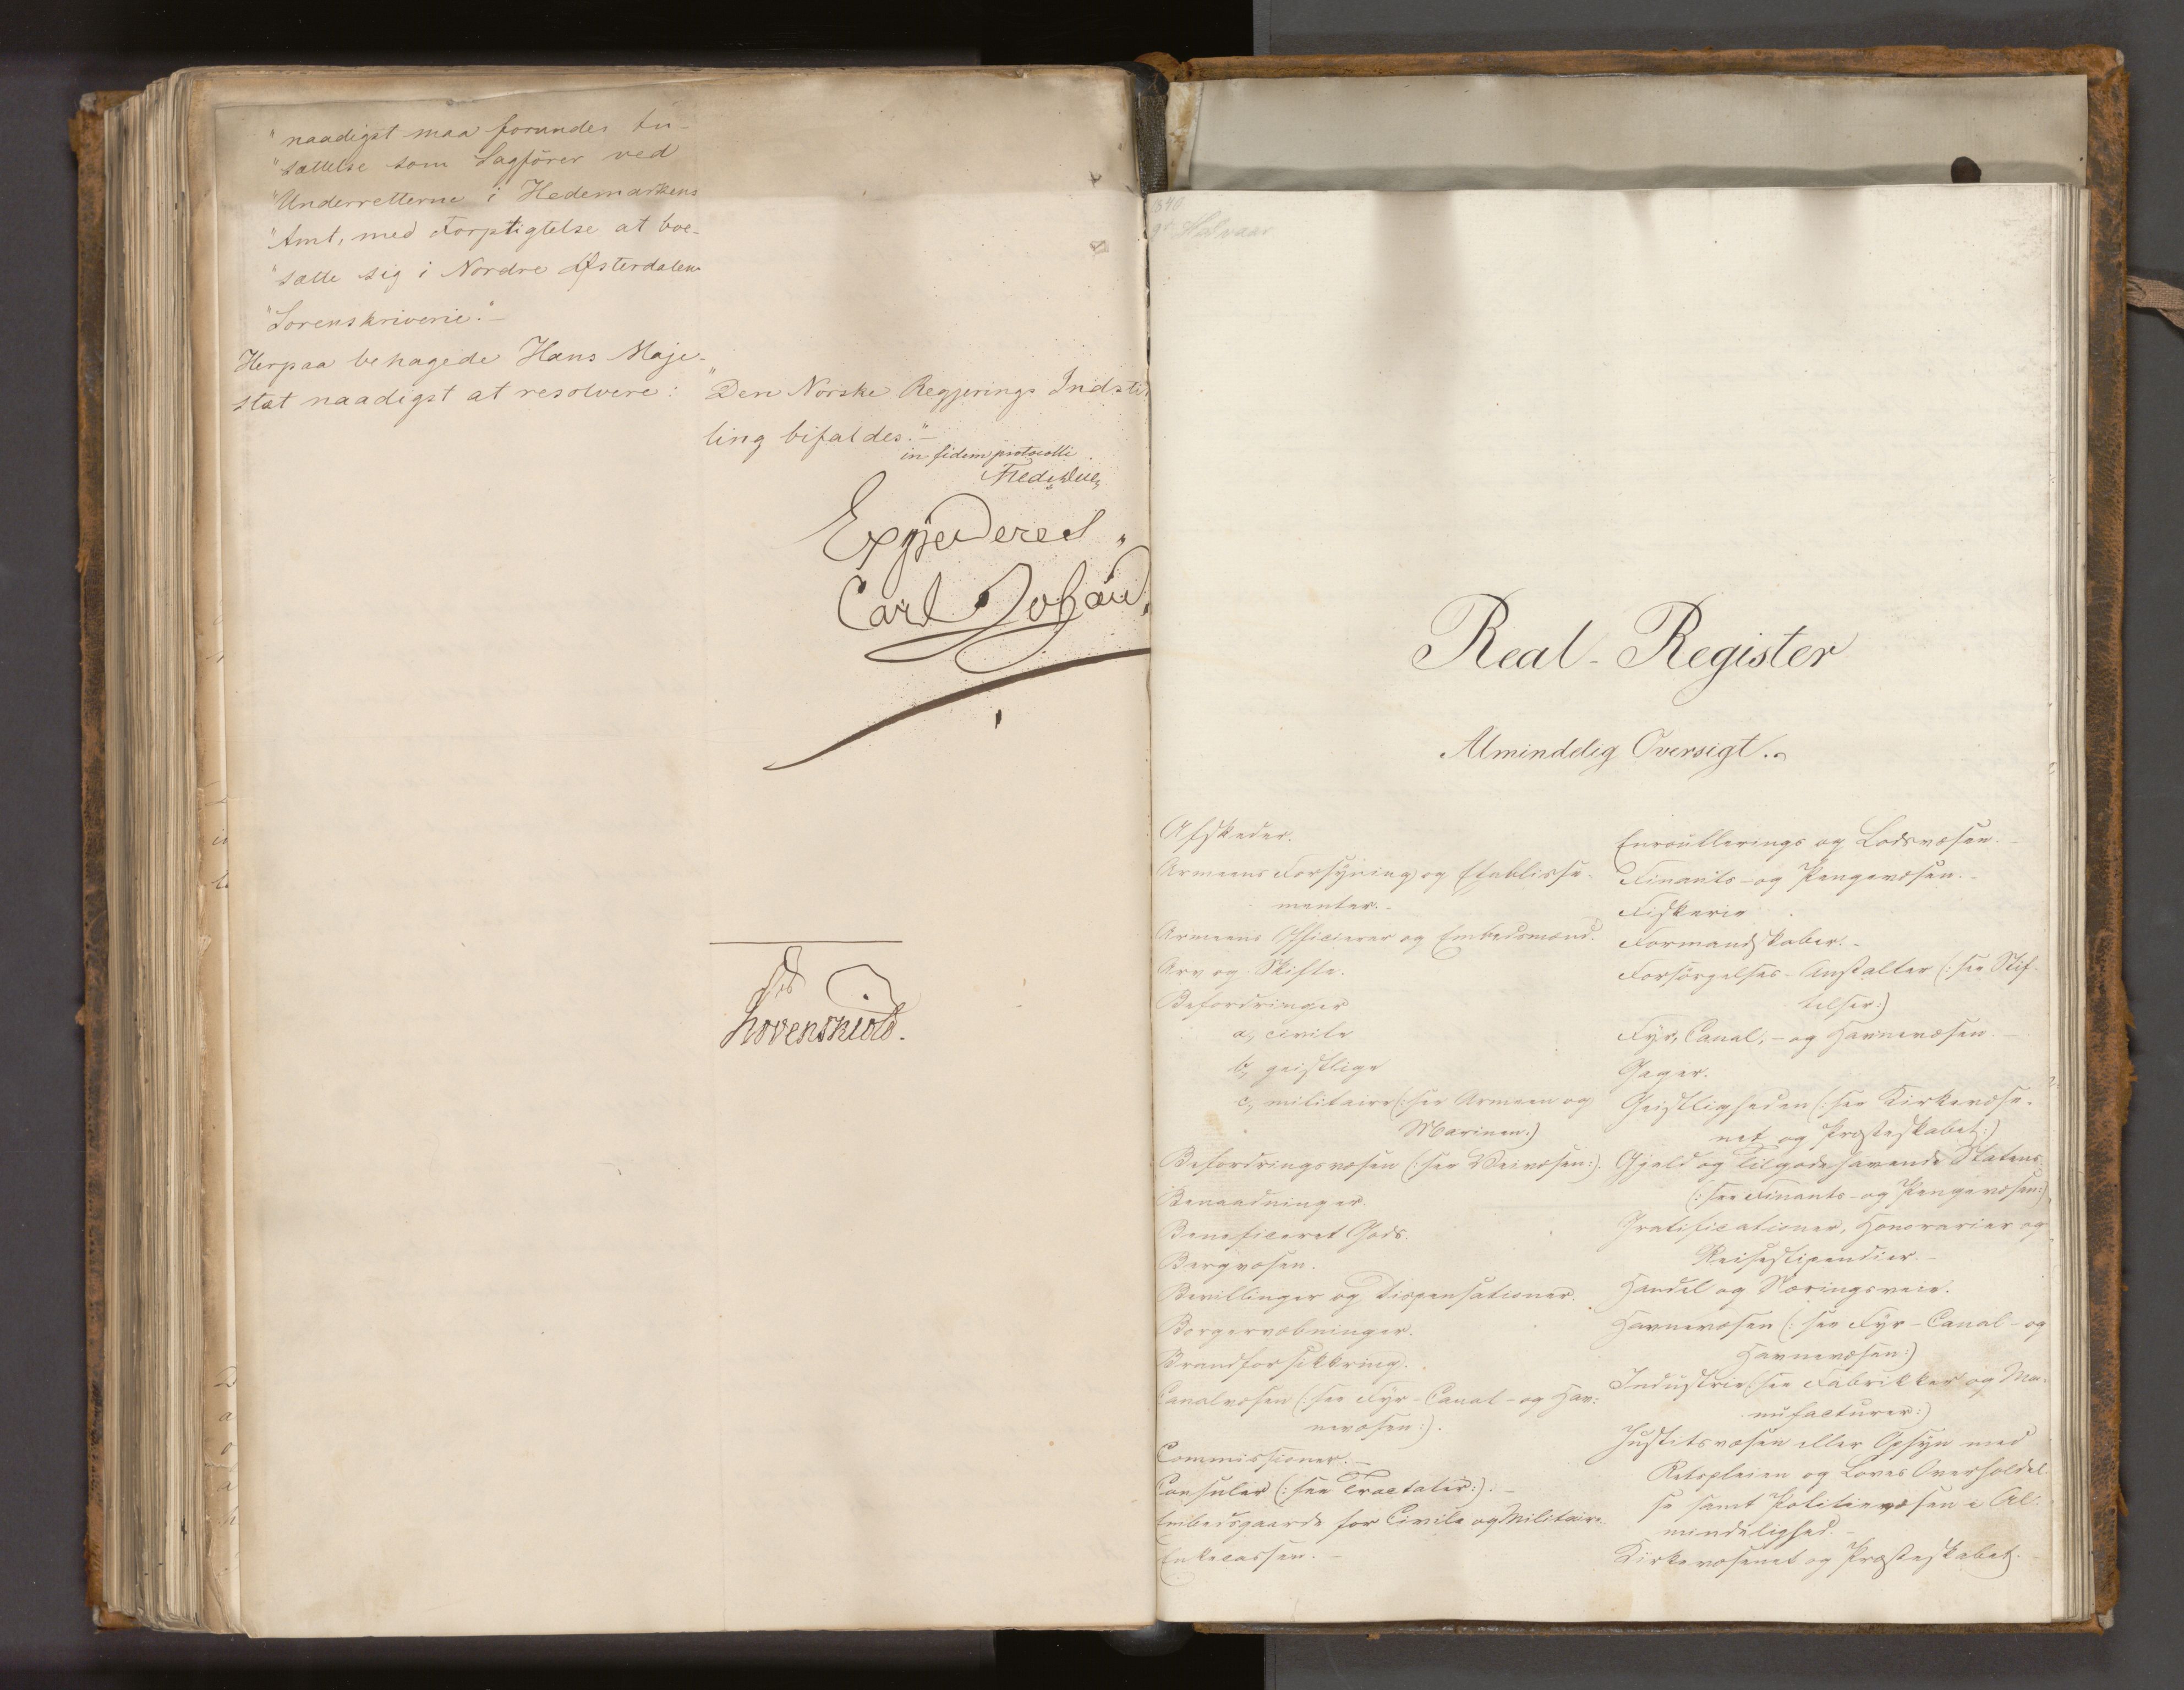 "naadigst maa forundes An-
"sættelse som Sagförer ved
"Underretterne i Hedemarkens
"Amt, med Forpligtelse at boe-
"sætte sig i Nordre Østerdalens
"Sorenskriverie."-
Herpaa behagede Hans Maje-
stæt naadigst at resolvere:
"Den Norske Regjerings Indstil
ling bifaldes."-
in fidem protocolli
Fredr. Due
Expederes
Carl Johan
Løvenskiold.
1840
Real-Register
Almindelig Oversigt.
Afskeder.
Armeens Forsyning og Etablisse-
menter.-
Armeens Officierer og Embedsmænd.
Arv og Skifte.
Befordringer
a, civile
b, geistlige
c, militaire (: see Armeen og
Marinen.)
Befordringsvæsen (: see Veivæsen:).
Benaadninger.
Beneficeret Gods.
Bergvæsen.
Bevillinger og Dispensationer.
Borgervæbninger.
Brandforsikkring.
Canalvæsen (: see Fyr-Canal-og Hav:
nevæsen:).
Commissioner.-
Consuler (: see Tractater:).-
Embedsgaarde for Civile og Militaire
Enkecassen.-
Enroullerings og Lodsvæsen.-
Finants-og Pengevæsen.-
Fiskerie
Formandskaber.-
Forsörgelses-Anstalter (: see Stif-
telser:)
Fyr, Canal,-og Havnevæsen
Gager.
Geistligheden (: see Kirkevæse-
net og Præsteskabet:)
Gjæld og Tilgodehavende Statens
(: see Finants-og Pengevæsen:)
Gratificationer, Honorarier og
Reisestipendier.-
Handel og Næringsveie.
Havnevæsen (: see Fyr-Canal-og
Havnevæsen:)
Industrie (see Fabrikker og Ma-
nufacturer:)
Justitsvæsen eller Opsyn med
Retspleien og Loves Overholdel-
se samt Politievæsen i Al-
mindelighed.-
Kirkevæsenet og Præsteskabet.